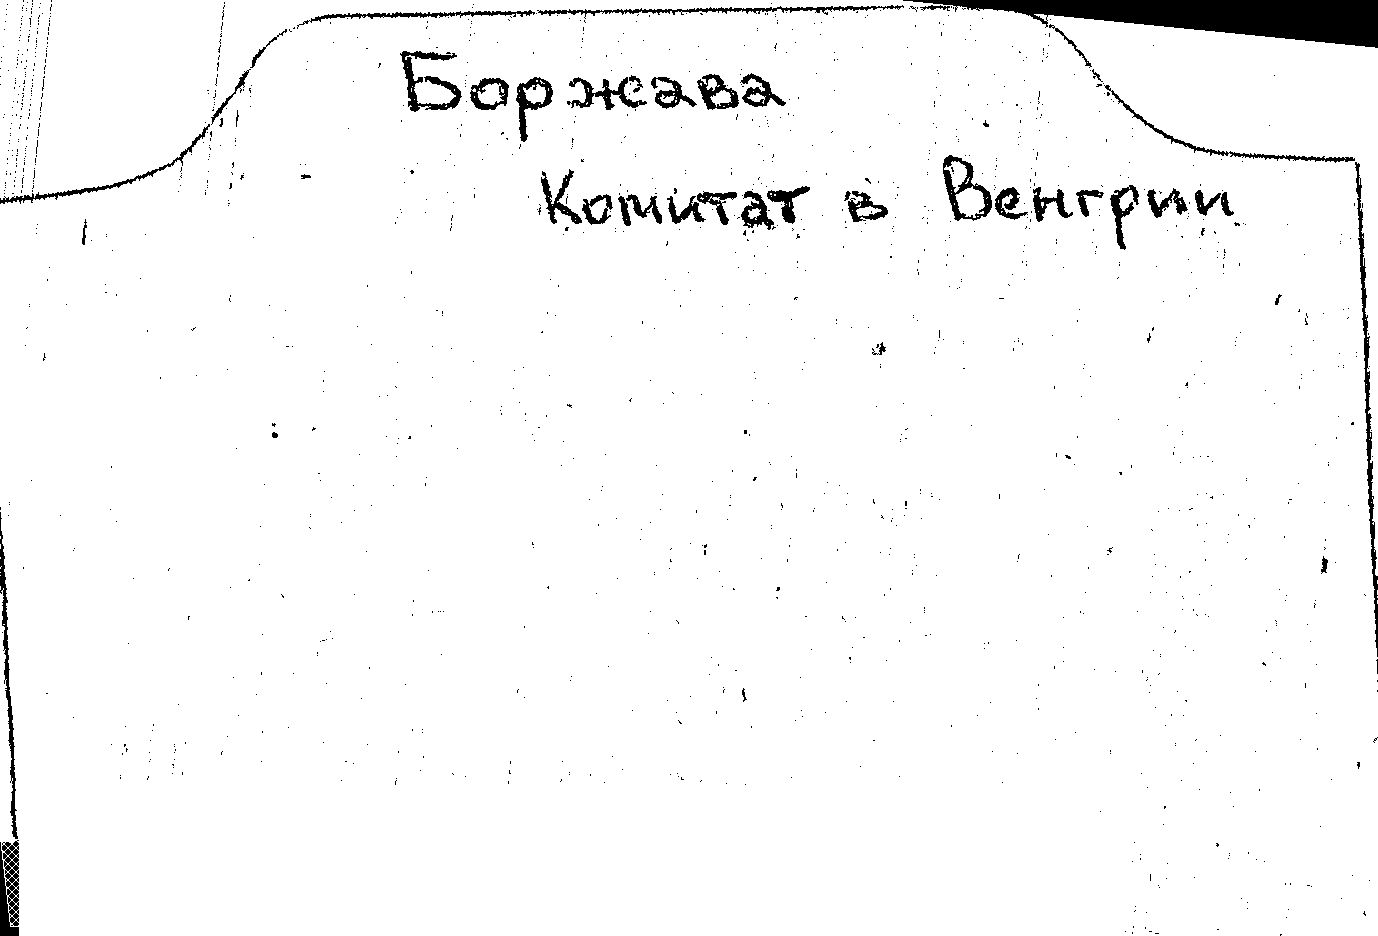 Боржава
Комитат в Венгрии